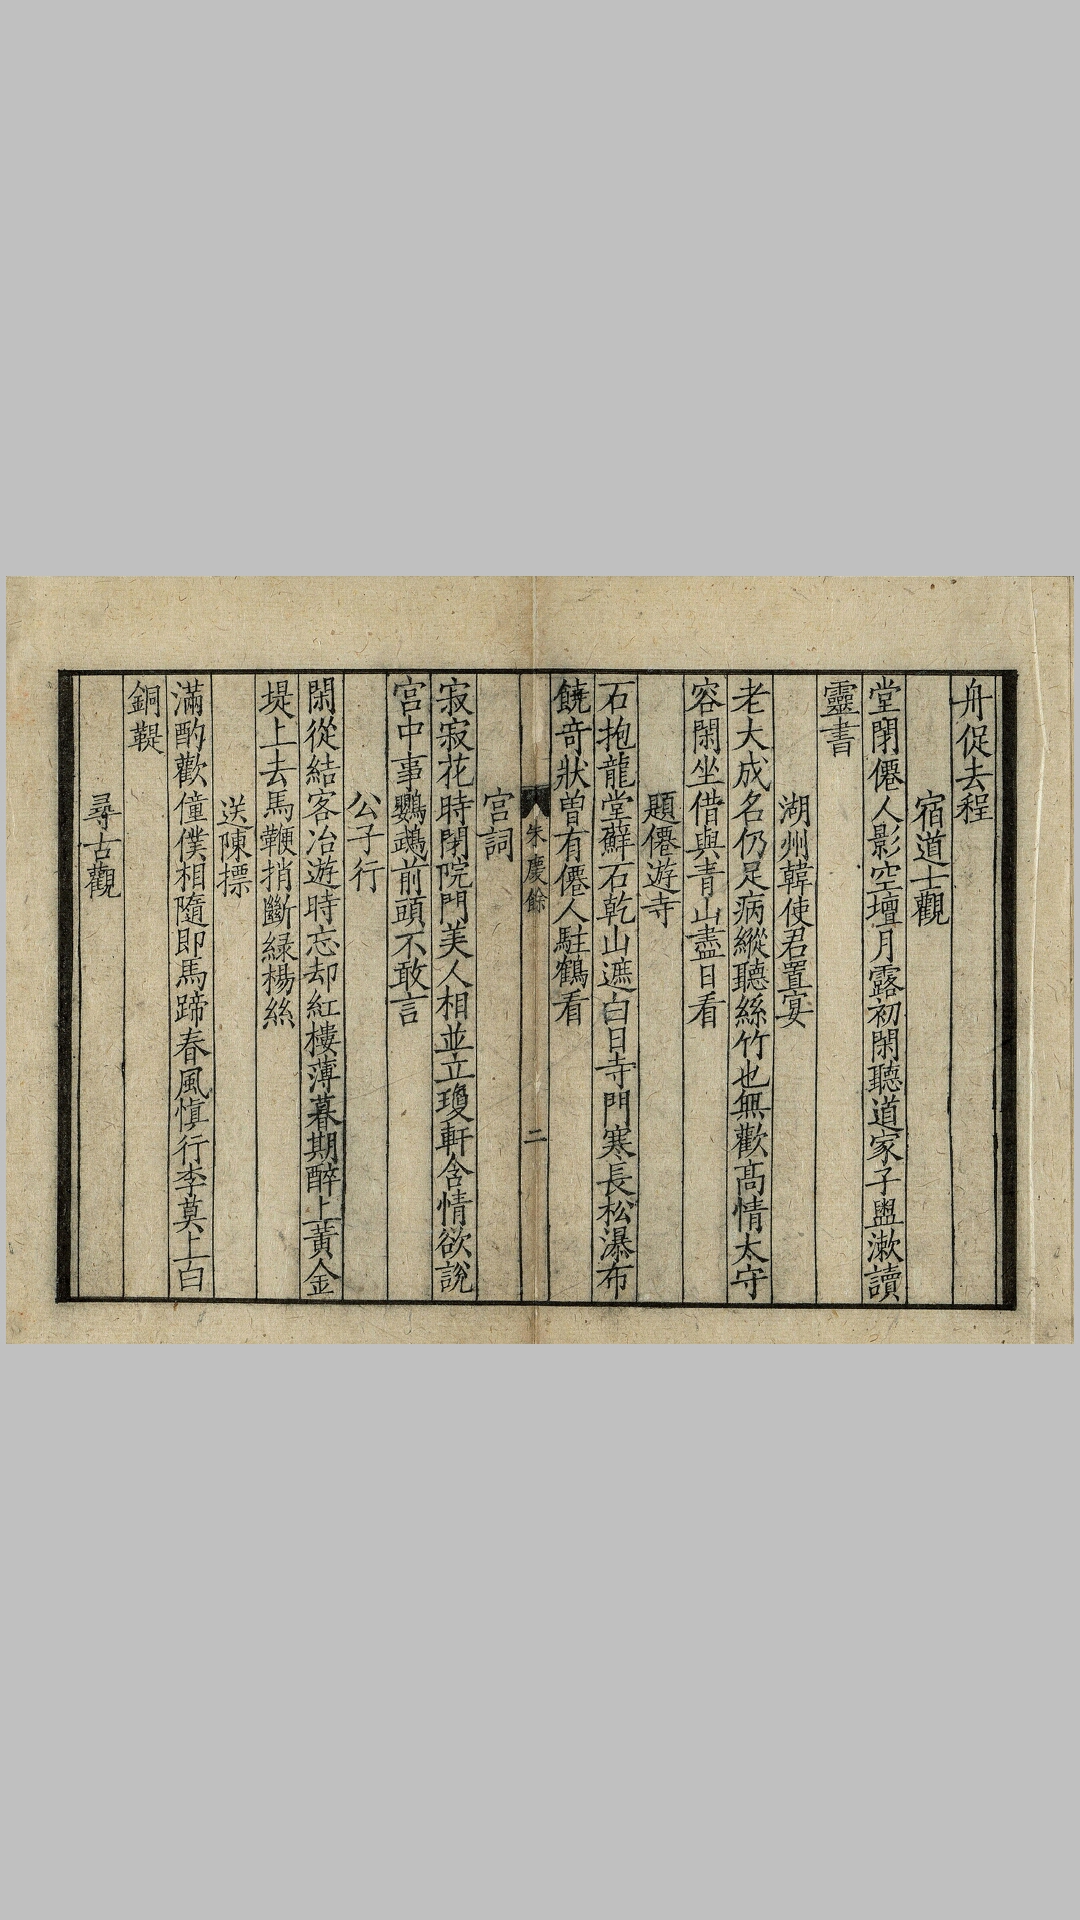 舟促去程
宿道士觀
堂閉僊人影空壇月露初閑聽道家子盥漱讀
靈書
湖州韓使君置宴
老大成名仍足病縱聽絲竹也無歡高情太守
容閑坐借與青山盡日看
題僊遊寺
石抱龍堂蘚石乾山遮白日寺門寒長松瀑布
饒奇狀曽有僊人駐鶴看
朱慶餘
二
宫詞
寂寂花時閉院門美人相並立瓊軒含情欲說
宫中事鸚鵡前頭不敢言
公子行
閑從結客冶遊時忘却紅樓薄暮期醉上黃金
堤上去馬鞭捎斷緑楊絲
送陳摽
滿酌歡僮僕相隨即馬蹄春風慎行李莫上白
銅鞮
尋古觀